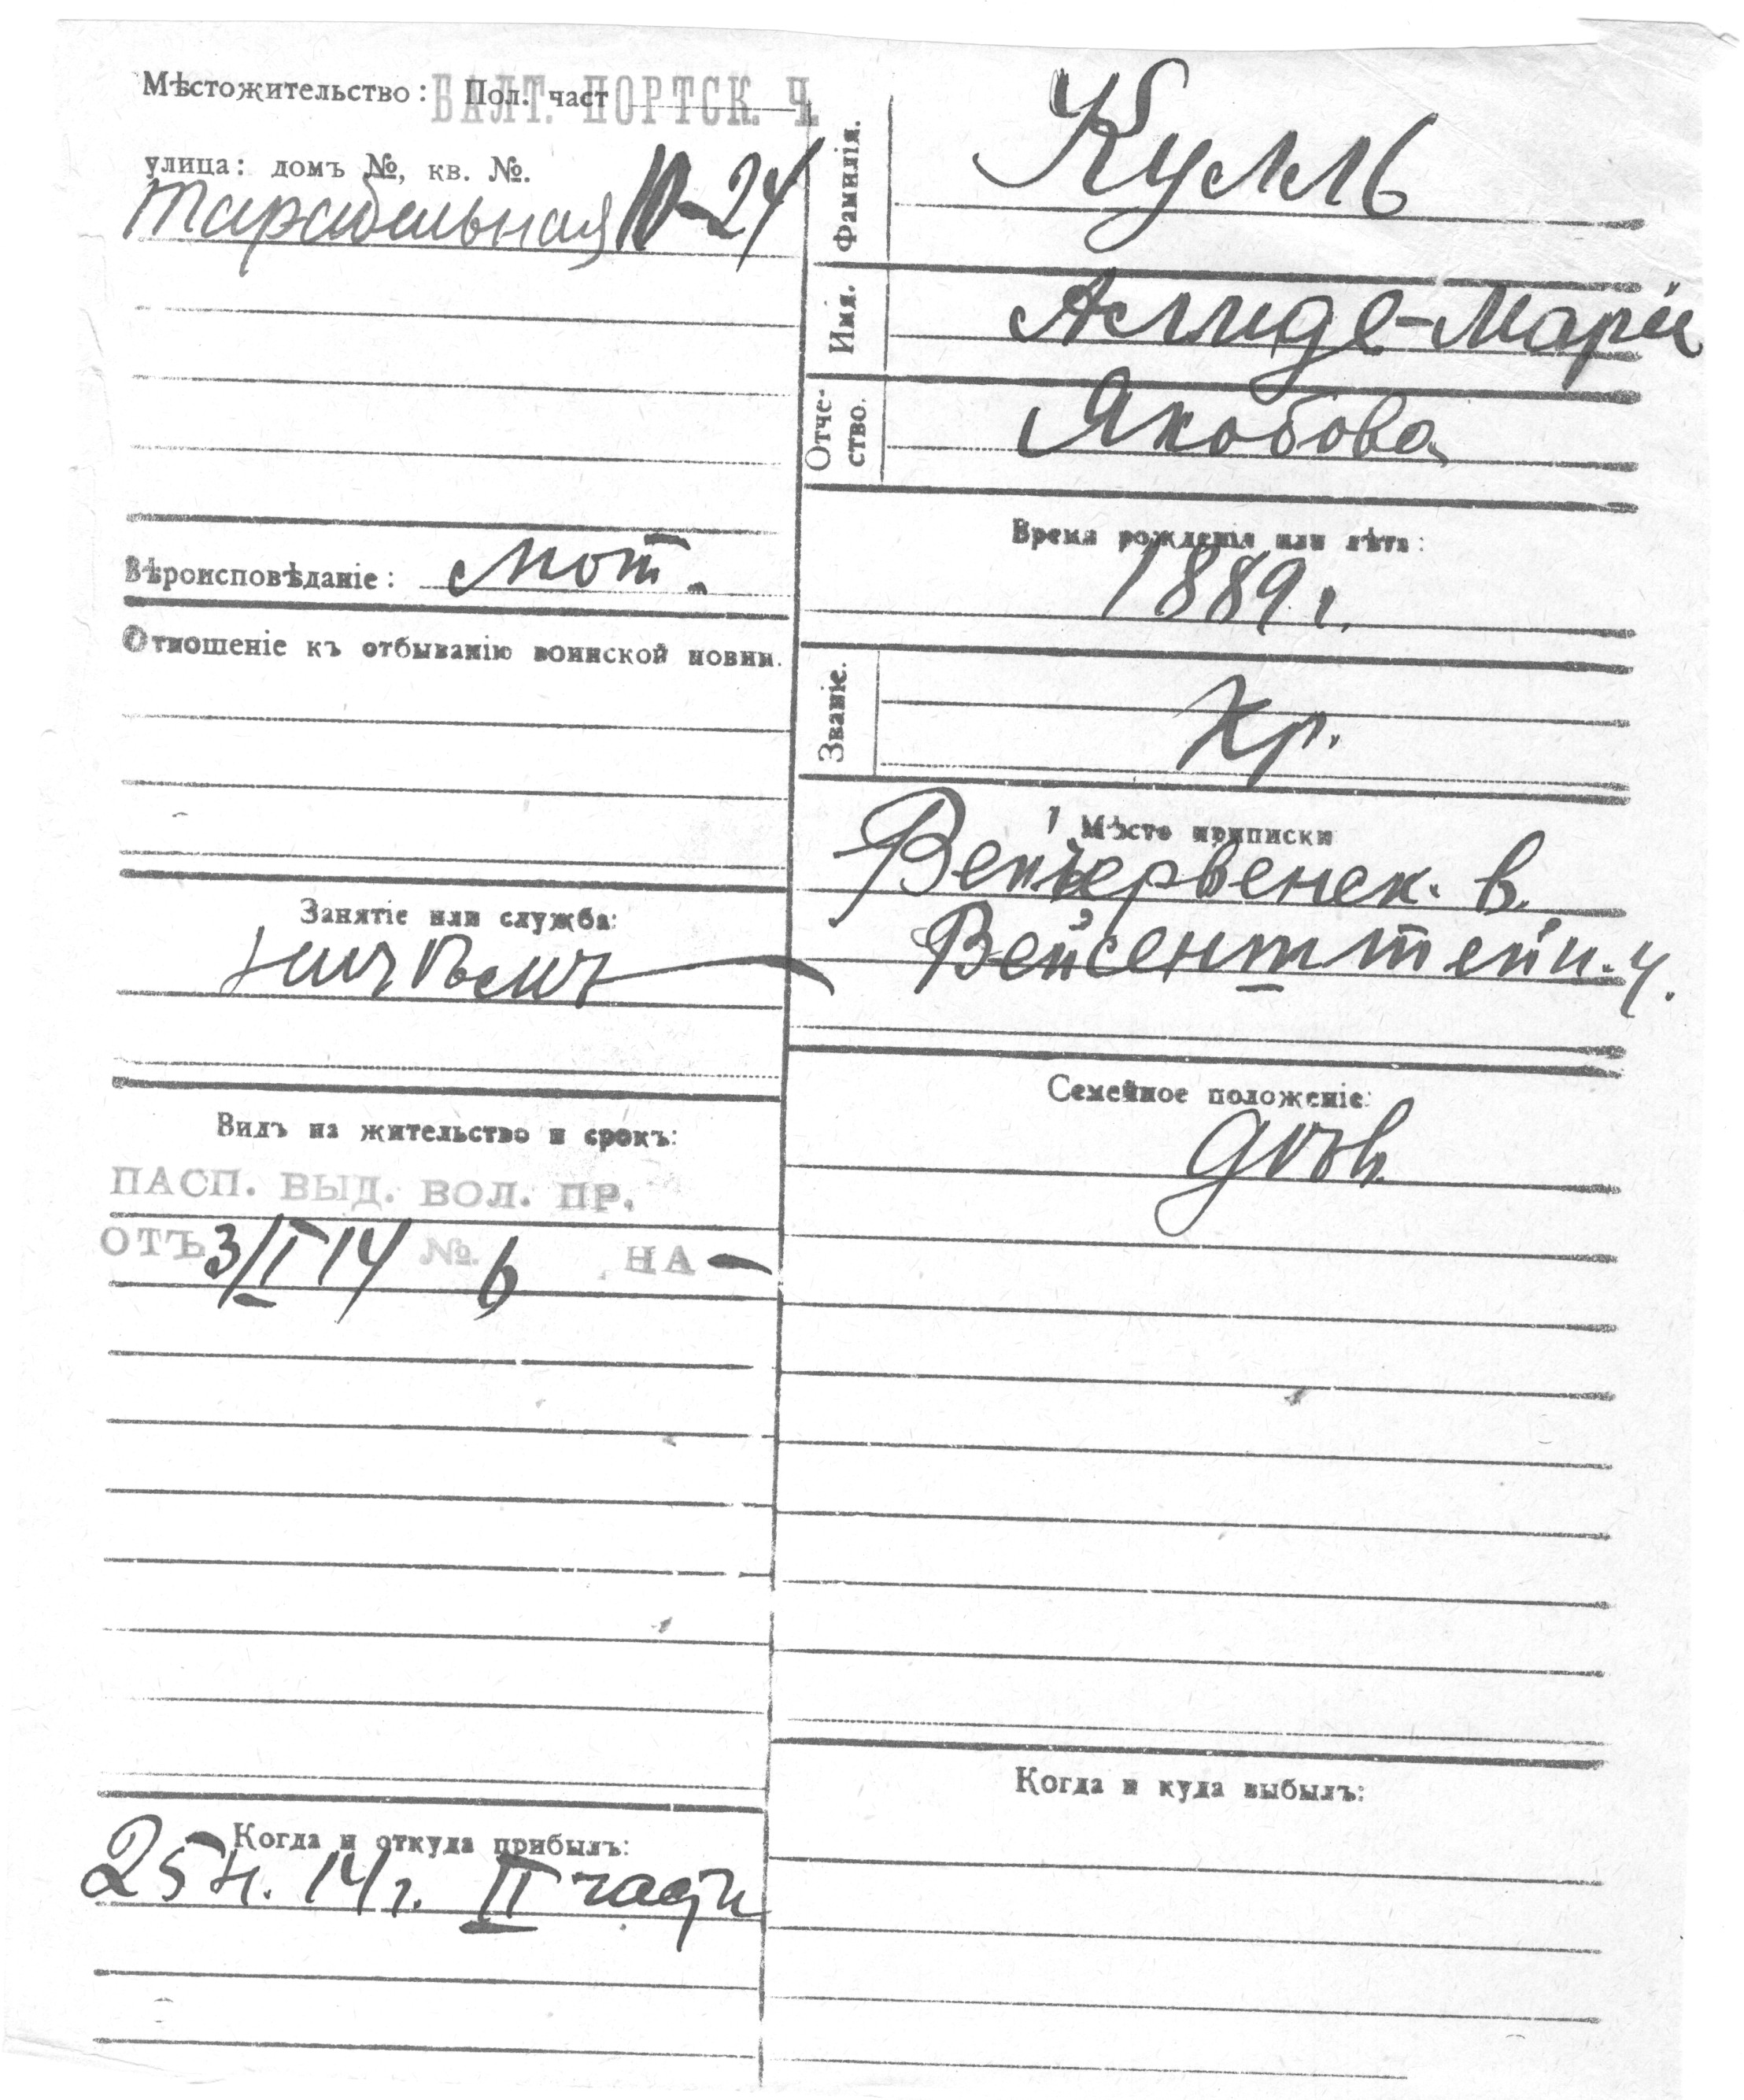 Мѣстожительство: Пол. част
БАЛТ. ПОРТСК. Ч.
улица: домъ №, кв. №.
10-24
Вѣроисповѣданіе: Лют.
Отношеніе къ отбыванію воинской повин.
Занятіе или служба:
Видъ на жительство и срокъ:
ПАСП. ВЫД. ВОЛ. ПР.
ОТЪ 3/II 14 № 6 НА -
Когда и откуда прибылъ:
25 14 г. II части
Фамилія. Кулль
Имя. Амиде-Марія
Отче-
ство. Якобова
Время рожденія или лѣта:
1889 г.
Званіе. Кр.
Мѣсто приписки
в.
Вейсенштейн. у.
Семейное положеніе:
Когда и куда выбылъ: